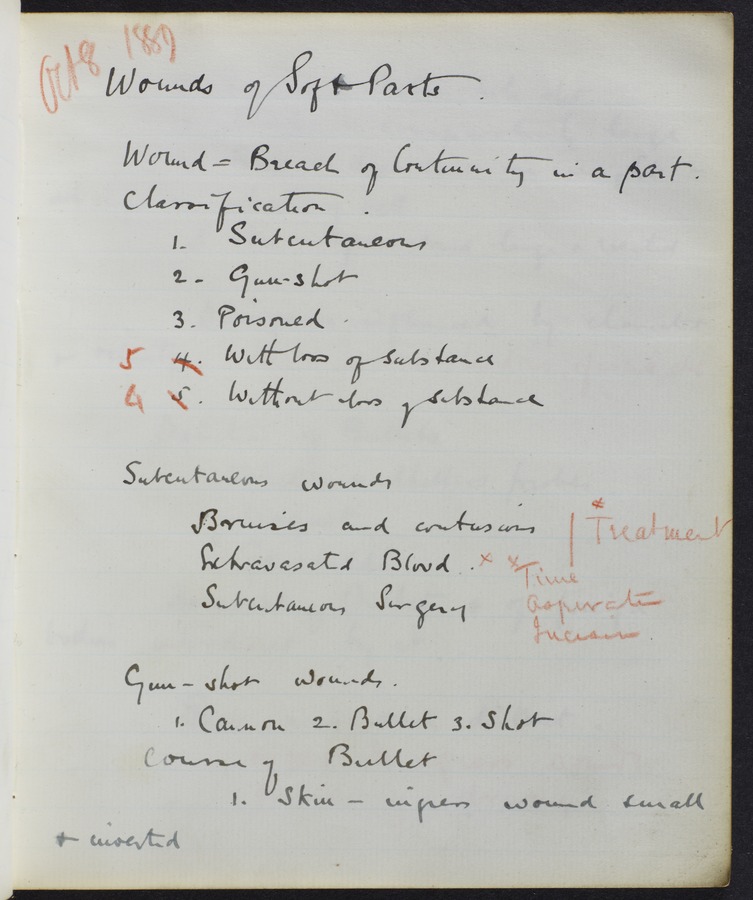 Oct 8 1889
Wounds of Soft Parts.
Wound = Breach of Continuity in a part.
Classification.
1. Subcutaneous
2. Gun-shot
3. Poisoned.
5 4. With loss of substance
4 5. Without loss of substance
Subcutaneous wounds
Bruises and contusions | * Treatment
Extravasated Blood. x x Time
Subcutaneous Surgery Aspirate
Incision.
Gun-shot wounds.
1. Cannon 2. Bullet 3. Shot
Course of Bullet
1. Skin - ingress wound small
+ inverted